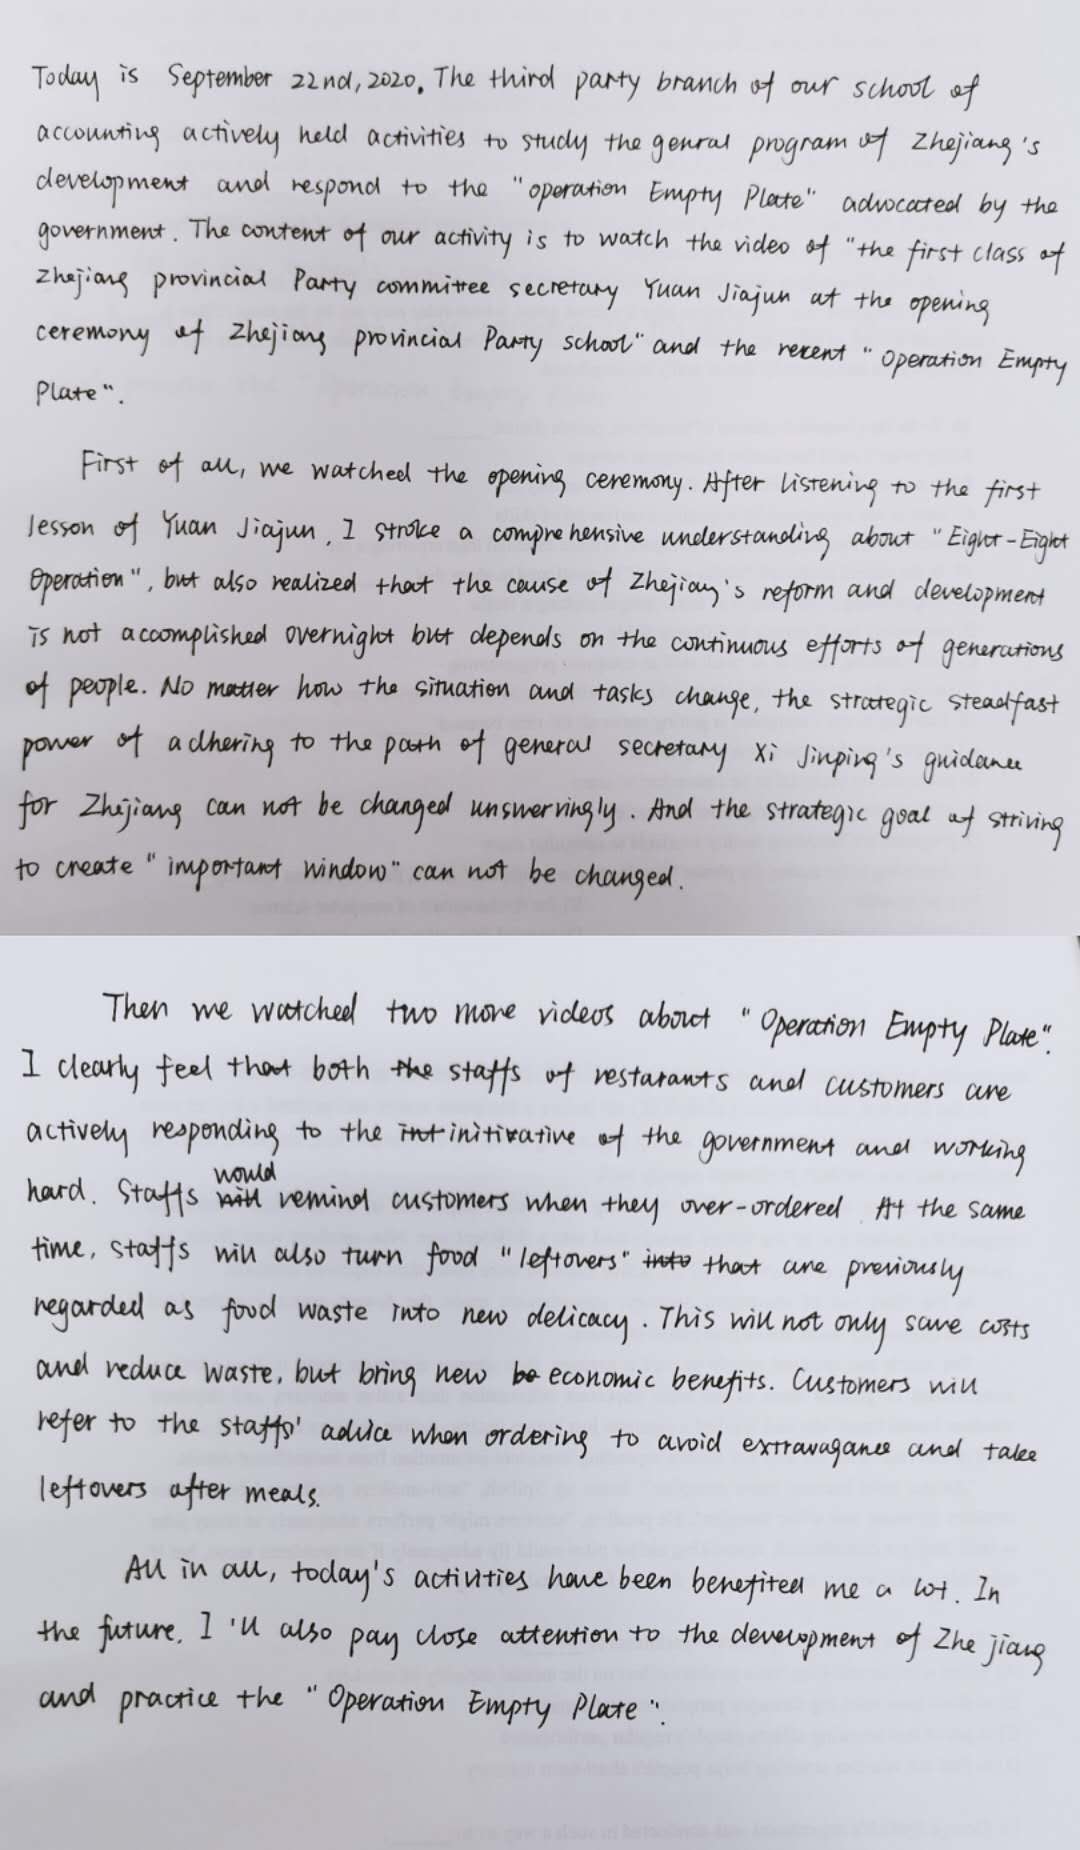 Today is September 22nd, 2020. The third party branch of our school of
accounting actively held activities to study the genral program of Zhejiang's
development and respond to the "operation Empty Plate" advocated by the
government. The content of our activity is to watch the video of "the first class of
Zhejiang provincial Party committee secretary Yuan Jiajun at the opening
ceremony of Zhejiang provincial Party school" and the recent "Operation Empty
Plate".
First of all, we watched the opening ceremony. After listening to the first
lesson of Yuan Jiajun, I stroke a comprehensive understanding about "Eight-Eight
Operation", but also realized that the cause of Zhejiang's reform and development
is not accomplished overnight but depends on the continuous efforts of generations
of people. No matter how the situation and tasks change, the strategic steadfast
power of adhering to the path of general secretary Xi Jinping's guidance
for Zhejiang can not be changed unswervingly. And the strategic goal of striving
to create "important window" can not be changed.
Then we watched two more videos about "Operation Empty Plate".
I clearly feel that both the staffs of restarants and customers are
actively responding to the initivative of the government and working
hard. Staffs would remind customers when they over-ordered. At the same
time, staffs will also turn food "leftovers" that are previously
regarded as food waste into new delicacy. This will not only save costs
and reduce waste, but bring new economic benefits. Customers will
refer to the staffs' advice when ordering to avoid extravagance and take
leftovers after meals.
All in all, today's activities have been benefited me a lot. In
the future, I'll also pay close attention to the development of Zhejiang
and practice the "Operation Empty Plate".